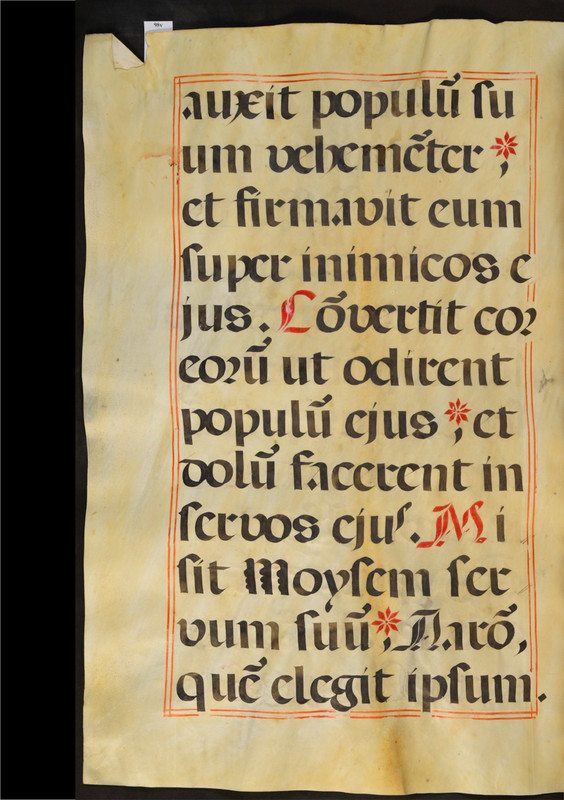 auxit populũ ſu
um vehemẽter *;
et firmavit eum
ſuper inimicos e
jus. Cõvertit coꝛ
eoꝛũ ut odirent
populũ ejus *; et
dolũ facerent in
ſervos ejuſ. Mi
ſit Moyſem ſer
vum ſuũ *; Aarõ,
quẽ elegit ipſum.